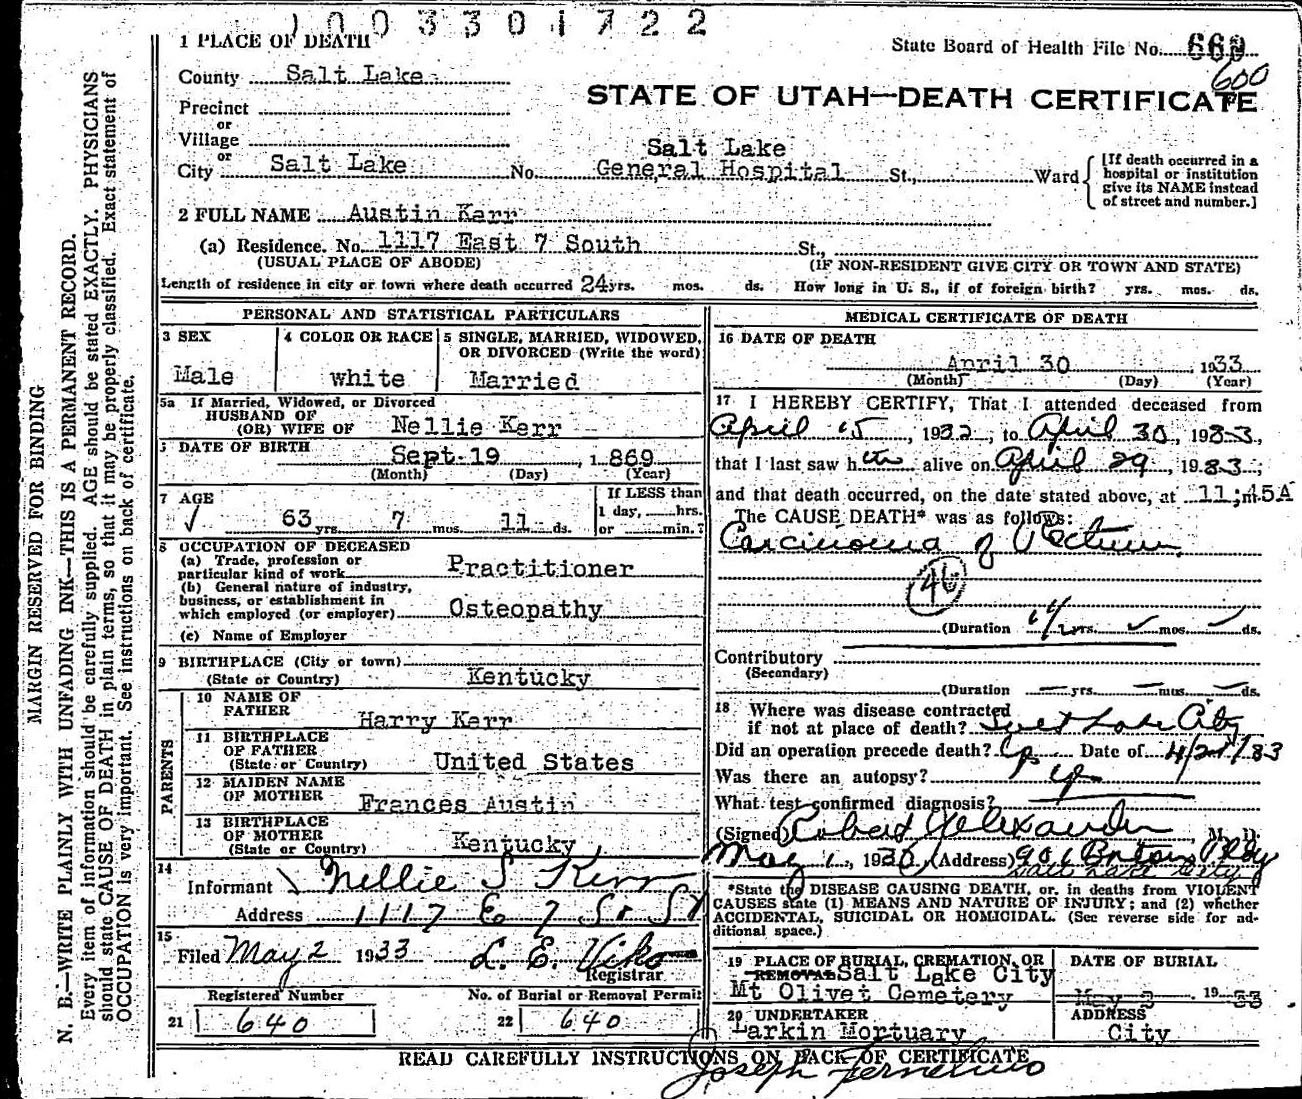 1003301722
1 PLACE OF DEATH
State Board of Health File No. 660
600
County Salt Lake
STATE OF UTAH—DEATH CERTIFICATE
Precinct
or
Village
or
City Salt Lake No. Salt Lake General Hospital St., Ward
[If death occurred in a hospital or institution give its NAME instead of street and number.]
2 FULL NAME Austin Kerr
(a) Residence. No. 1117 East 7 South St.,
(USUAL PLACE OF ABODE) (IF NON-RESIDENT GIVE CITY OR TOWN AND STATE)
Length of residence in city or town where death occurred 24 yrs. mos. ds. How long in U. S., if of foreign birth? yrs. mos. ds.
PERSONAL AND STATISTICAL PARTICULARS
3 SEX
Male
4 COLOR OR RACE
white
5 SINGLE, MARRIED, WIDOWED,
OR DIVORCED (Write the word)
Married
5a If Married, Widowed, or Divorced
HUSBAND OF
(OR) WIFE OF Nellie Kerr
6 DATE OF BIRTH Sept. 19, 1869
(Month) (Day) (Year)
7 AGE
63 yrs. 7 mos. 11 ds.
If LESS than
1 day, hrs.
or min.?
8 OCCUPATION OF DECEASED
(a) Trade, profession or
particular kind of work Practitioner
(b) General nature of industry,
business, or establishment in
which employed (or employer) Osteopathy
(c) Name of Employer
9 BIRTHPLACE (City or town)
(State or Country) Kentucky
PARENTS
10 NAME OF
FATHER Harry Kerr
11 BIRTHPLACE
OF FATHER
(State or Country) United States
12 MAIDEN NAME
OF MOTHER Frances Austin
13 BIRTHPLACE
OF MOTHER
(State or Country) Kentucky
14
Informant Nellie S Kerr
Address 1117 E 7 So St
15
Filed May 2 1933 L. E. Viko
Registrar
Registered Number
21 640
No. of Burial or Removal Permit
22 640
MEDICAL CERTIFICATE OF DEATH
16 DATE OF DEATH
April 30, 1933
(Month) (Day) (Year)
17 I HEREBY CERTIFY, That I attended deceased from
April 15, 1932, to April 30, 1933,
that I last saw him alive on April 29, 1933;
and that death occurred, on the date stated above, at 11;15A m.
The CAUSE DEATH* was as follows:
Carcinoma of Rectum.
46
(Duration 1 1/2 yrs. mos. ds.
Contributory
(Secondary)
(Duration — yrs. — mos. — ds.
18 Where was disease contracted
if not at place of death? Salt Lake City
Did an operation precede death? Date of
Was there an autopsy?
What test confirmed diagnosis?
(Signed) Robert J Alexander M. D.
May 1, 1930 (Address) Boston Bldg
Salt Lake City
*State the DISEASE CAUSING DEATH, or, in deaths from VIOLENT
CAUSES state (1) MEANS AND NATURE OF INJURY; and (2) whether
ACCIDENTAL, SUICIDAL OR HOMICIDAL. (See reverse side for ad-
ditional space.)
19 PLACE OF BURIAL, CREMATION, OR
REMOVAL Salt Lake City
Mt Olivet Cemetery
DATE OF BURIAL
May 3, 1933
20 UNDERTAKER
Larkin Mortuary
ADDRESS
City
READ CAREFULLY INSTRUCTIONS ON BACK OF CERTIFICATE
Joseph Fernelius
MARGIN RESERVED FOR BINDING
N. B.—WRITE PLAINLY WITH UNFADING INK—THIS IS A PERMANENT RECORD.
Every item of information should be carefully supplied. AGE should be stated EXACTLY. PHYSICIANS
should state CAUSE OF DEATH in plain terms, so that it may be properly classified. Exact statement of
OCCUPATION is very important. See instructions on back of certificate.